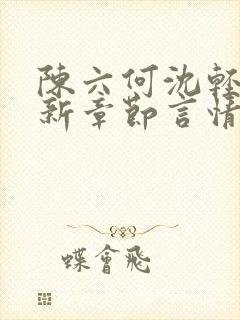 陳六何沈輕
新章節言情
蝶會飛